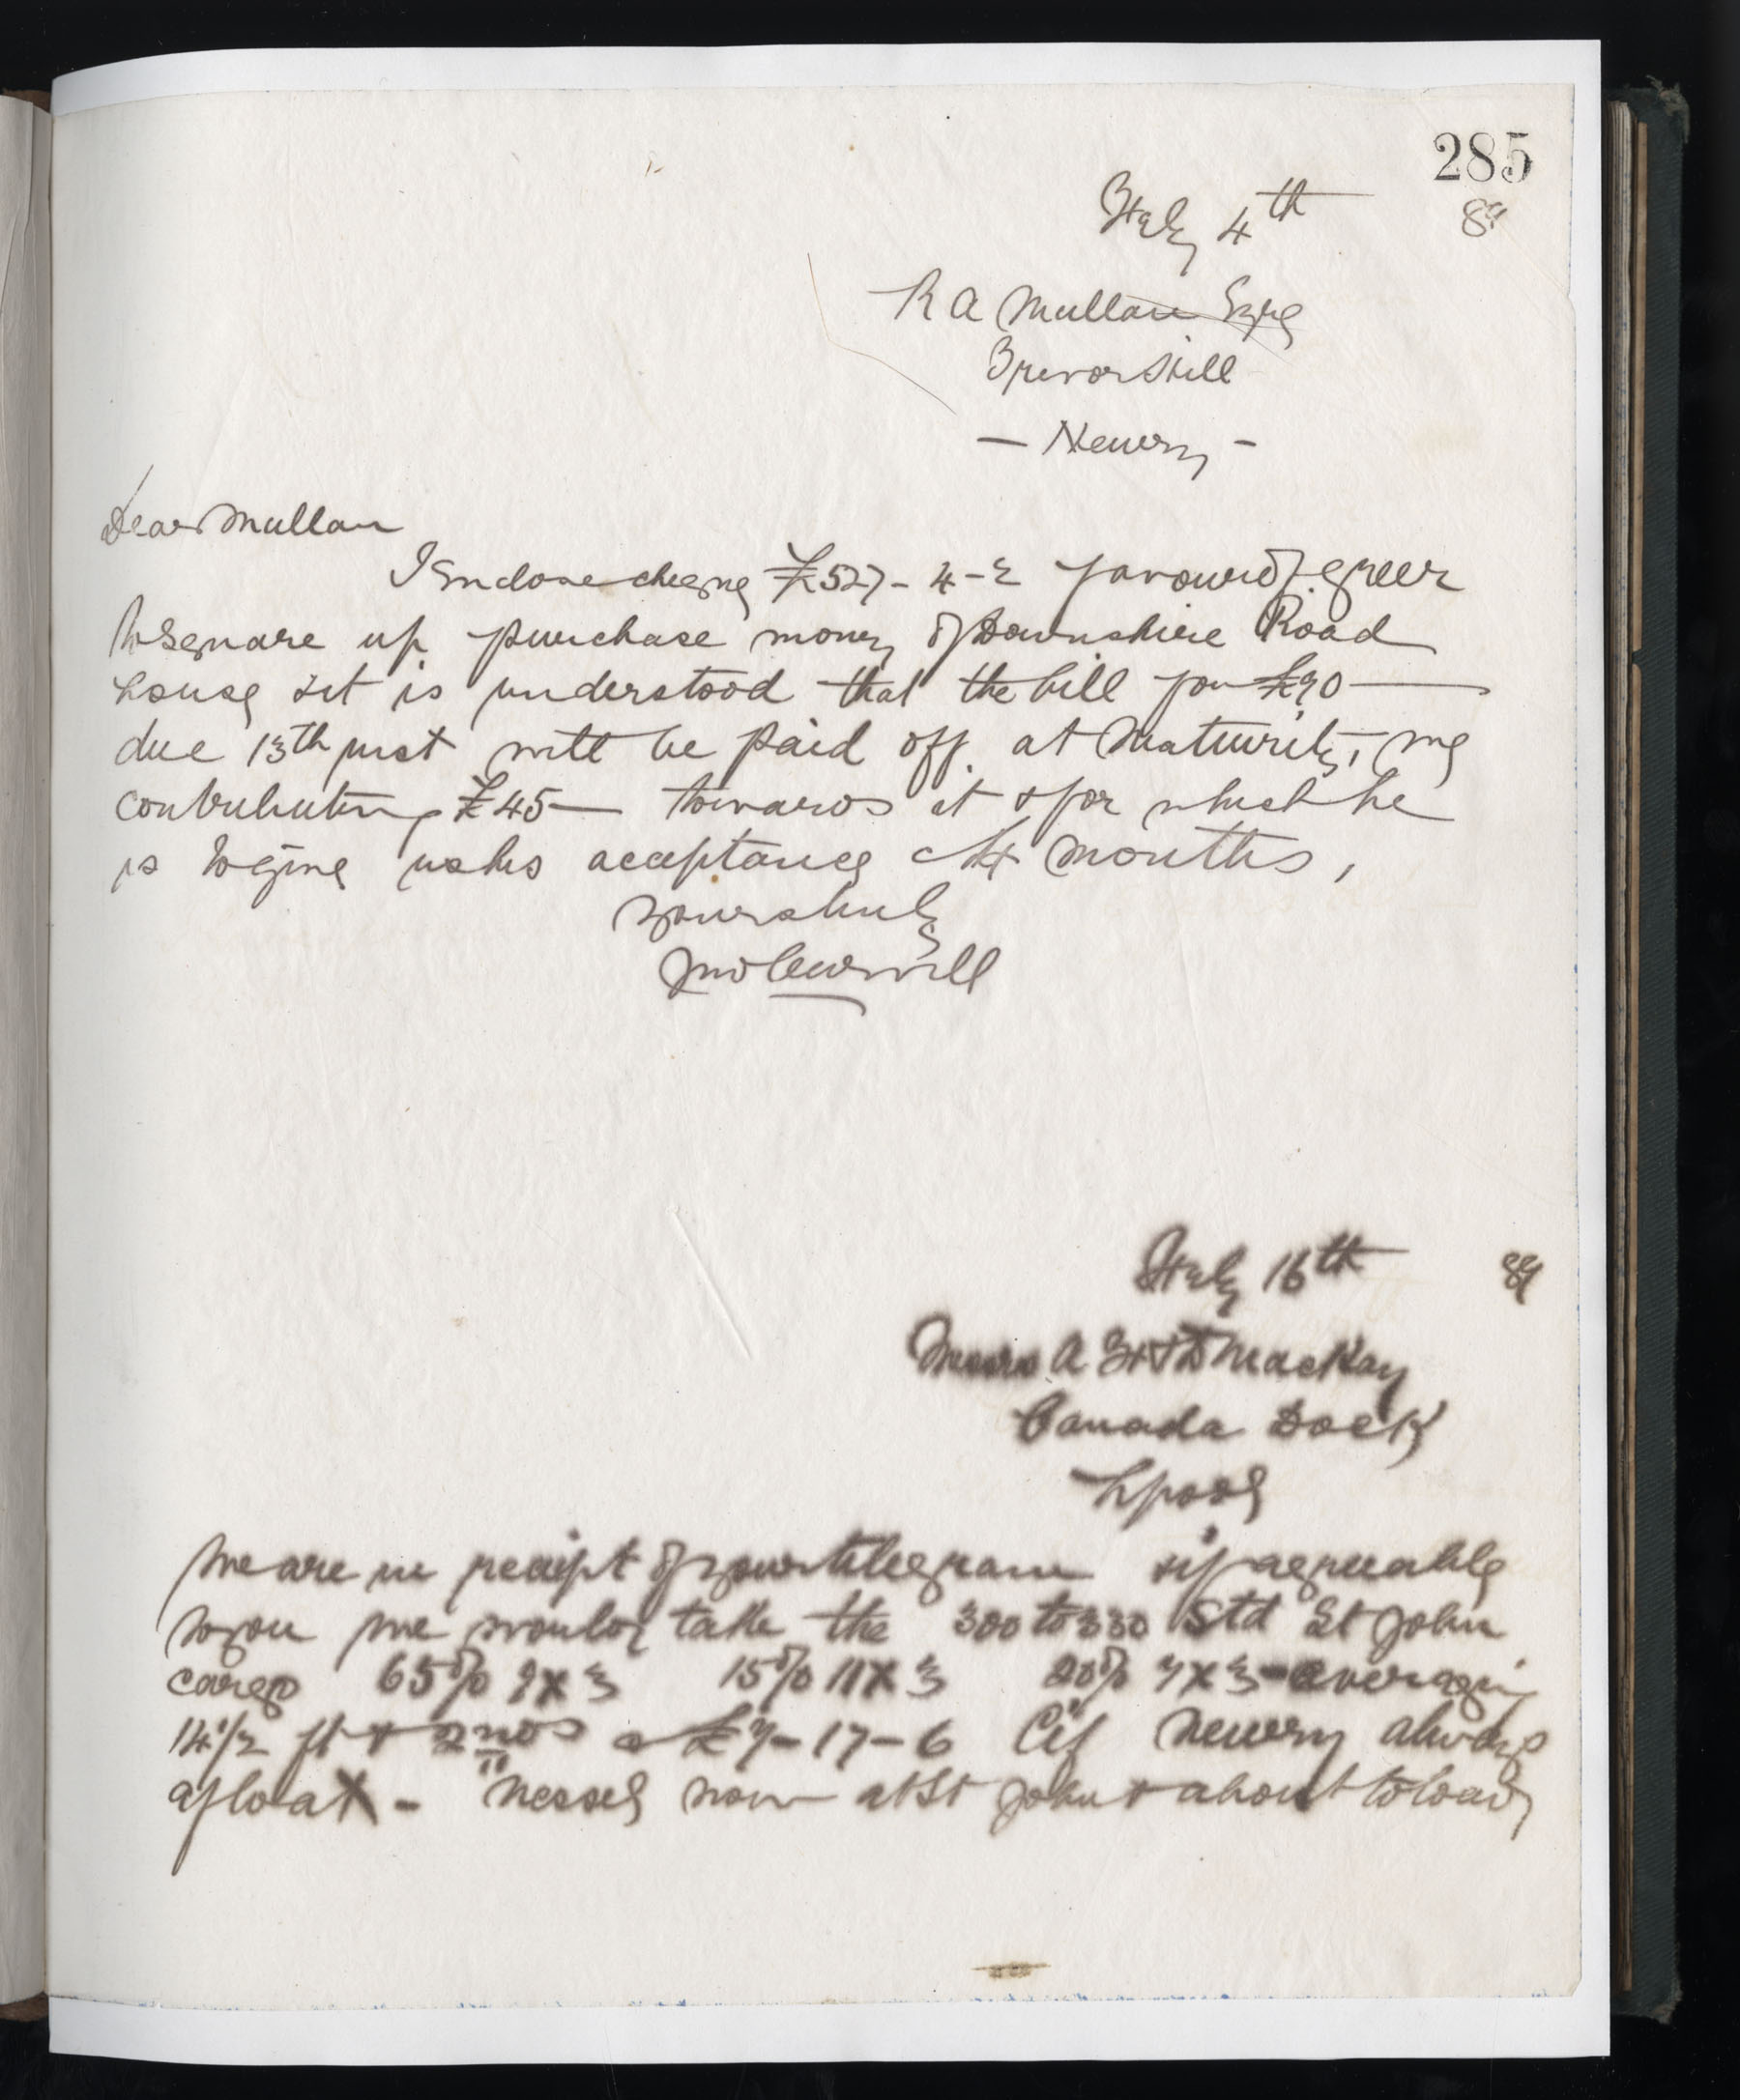 285
July 4th 89
R A Mullan Esqre
Trevor Hill
- Newry -
Dear Mullan
I Enclose cheque £527-4-2 favour of Greer
to square up purchase money of Downshire Road
house & it is understood that the bill for £90—
due 13th inst will be paid off at maturity, we
contributing £45— towards it & for which he
is to give us his acceptance @ 4 months,
yours truly
Jno
July 16th 89
Messrs A F & D Mackay
Canada Dock
Lpool
We are in receipt of your telegram & if agreeable
to you we would take the 300 to 330 Std St John
cargo 65% 9x3 15% 11x3 20% 7x3 - averaging
14 1/2 ft & 2nds @ £7-17-6 Cif Newry always
afloat - Vessel now at St John & about to load